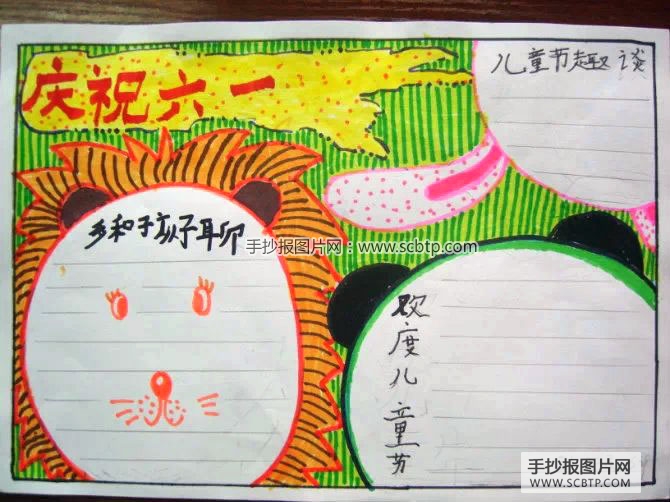 庆祝六一
儿童节趣谈
多和孩子聊
手抄报图片网：www.scbtp.com
欢度儿童节
手抄报图片网
WWW.SCBTP.COM